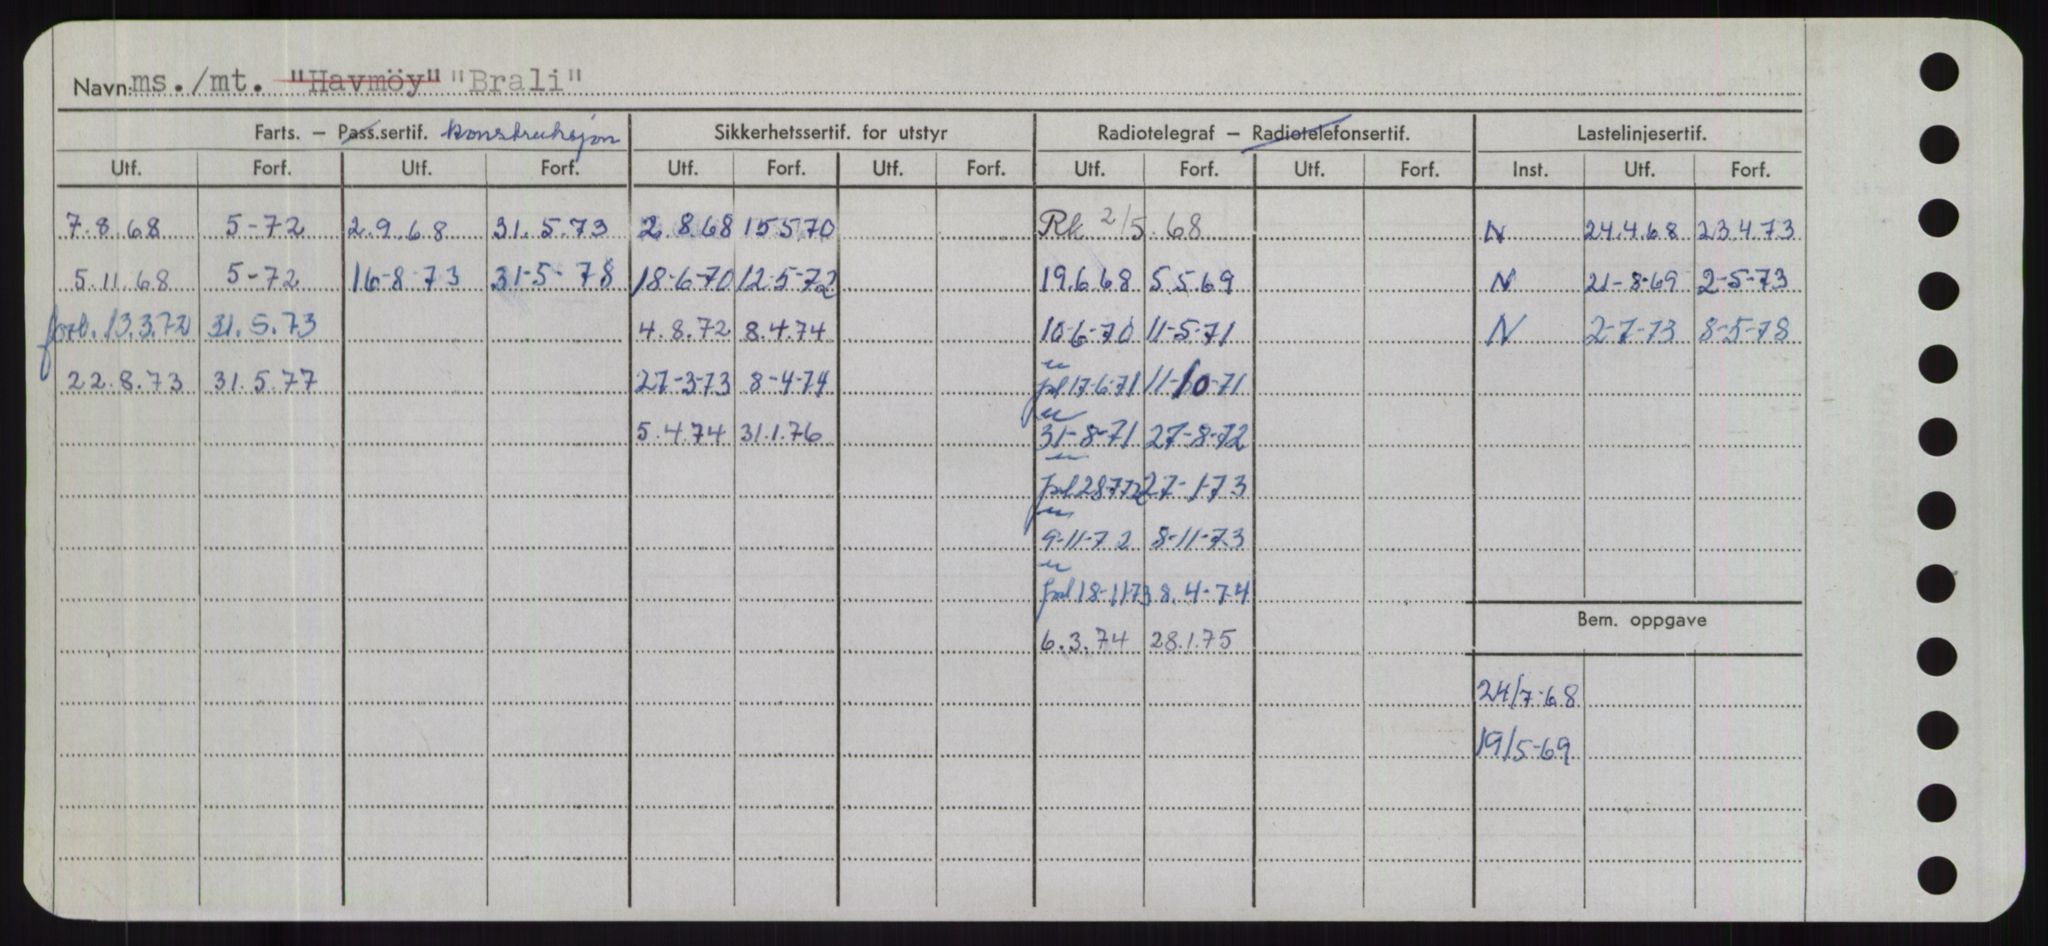 Navn: ms./mt. "Havmöy" "Brali"
Farts. – Pass.sertif. konstruksjon Sikkerhetssertif. for utstyr Radiotelegraf – Radiotelefonsertif. Lastelinjesertif.
Utf. Forf. Utf. Forf. Utf. Forf. Utf. Forf. Utf. Forf. Utf. Forf. Inst. Utf. Forf.
7.8.68 5-72 2.9.68 31.5.73 2.8.68 15.5.70 Rk 2/5.68 N 24.4.68 23.4.73
5.11.68 5-72 16-8-73 31-5-78 18-6-70 12-5-72 19.6.68 5.5.69 N 21-8-69 2-5-73
forl. 13.3.72 31.5.73 4.8.72 8.4.74 10-6-70 11-5-71 N 2-7-73 8-5-78
22.8.73 31.5.77 27-3-73 8-4-74 17-6-71 11-10-71
5.4.74 31.1.76 31-8-71 27-8-72
28772 27-1-73
9-11-72 8-11-73
18-1173 8.4-74
6.3.74 28.1.75
Bem. oppgave
24/7-68
19/5-69